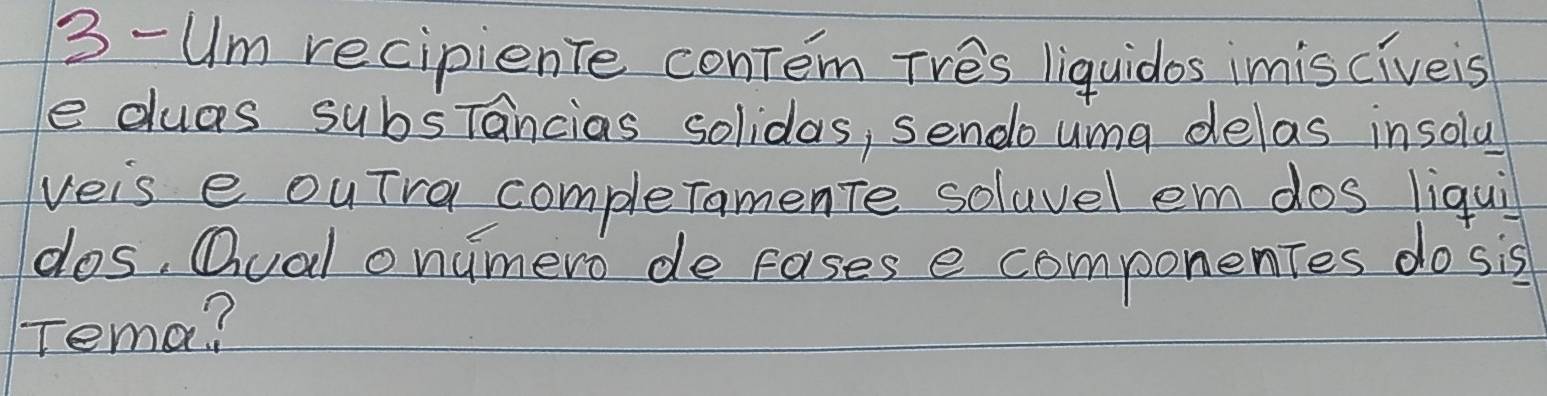 3-Um recipiente contém três liquidos imiscíveis
e duas substâncias solidas, sendo uma delas insolu
veis e outra completamente soluvel em dos liqui
dos. Qual o número de fases e componentes do sis
tema?